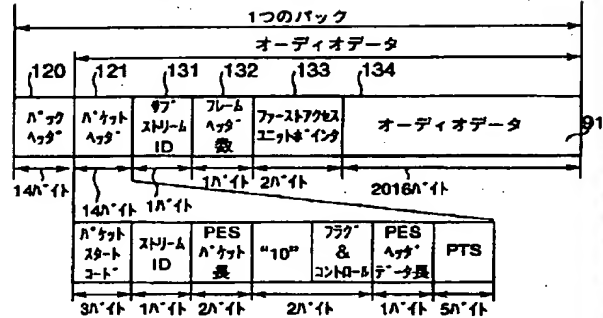 1つのパック
オーディオデータ
120
121
131
132
133
134
パック
ヘッダ
パケット
ヘッダ
サブ
ストリーム
ID
フレーム
ヘッダ
数
ファーストアクセス
ユニットポインタ
オーディオデータ
91
14バイト
14バイト
1バイト
1バイト
2バイト
2016バイト
パケット
スタート
コード
ストリーム
ID
PES
パケット
長
“10”
フラグ
&
コントロール
PES
ヘッダ
データ長
PTS
3バイト
1バイト
2バイト
2バイト
1バイト
5バイト